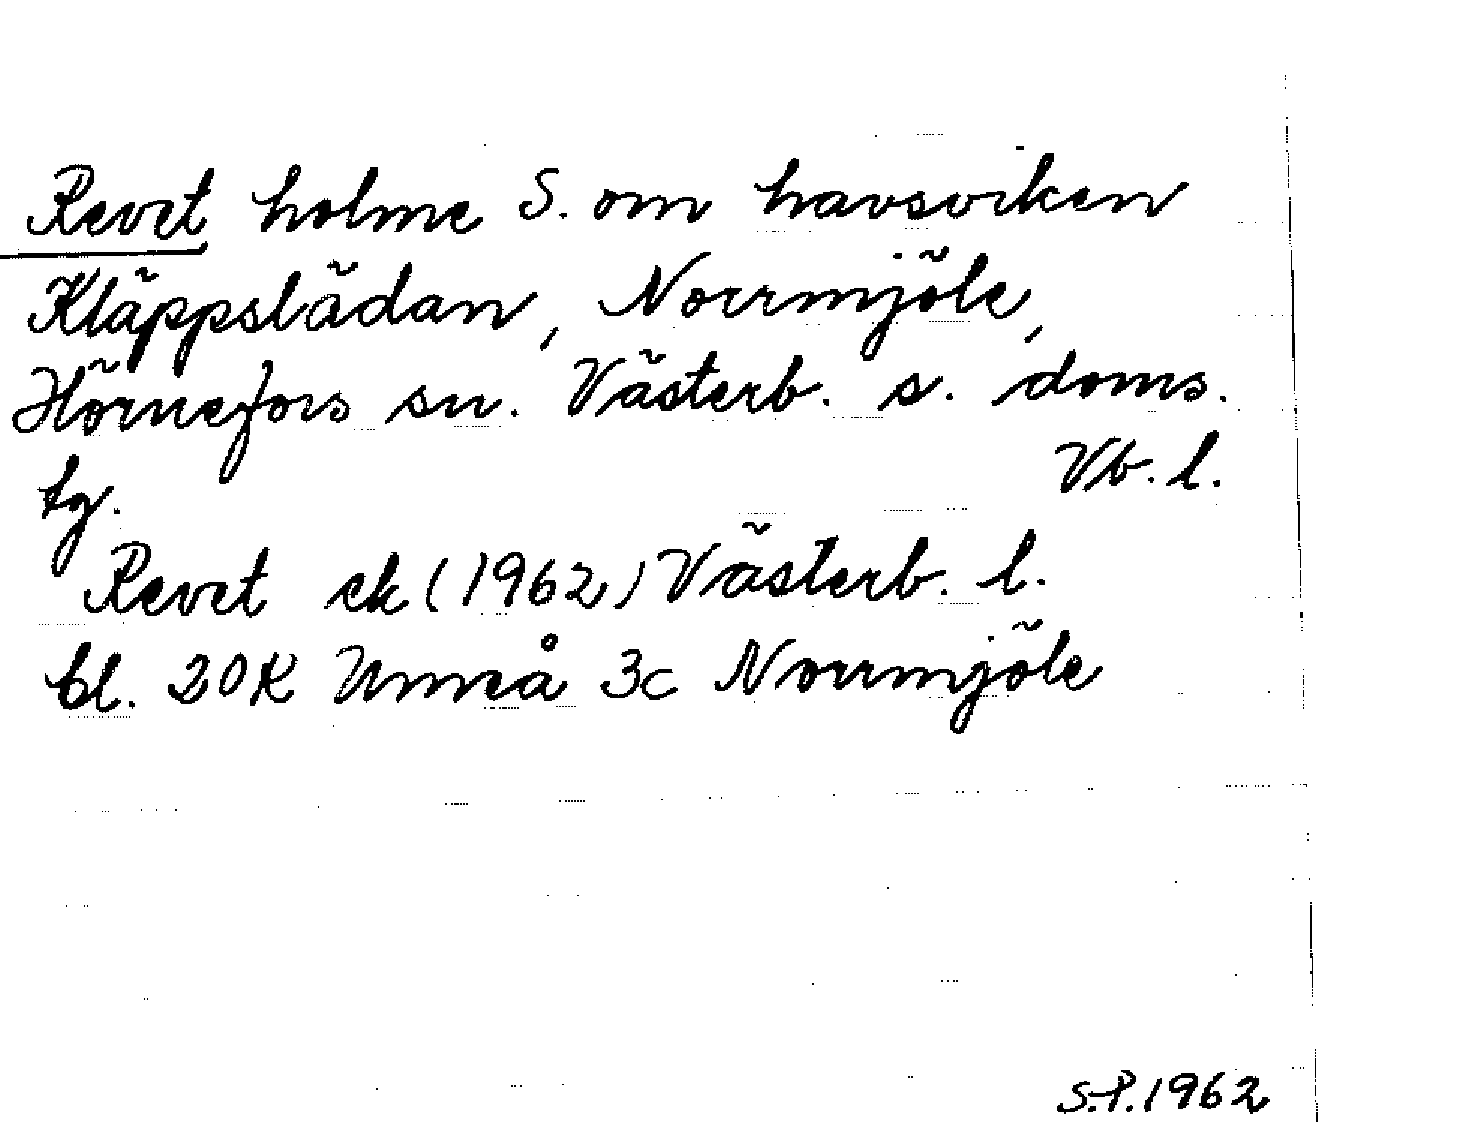 Revet holme S. om havsviken
Kläppslädan, Norrmjöle,
Hörnefors sn. Västerb. s. doms.
tg. Vb. l.
Revet ek (1962) Västerb. l.
bl. 20K Umeå 3c Norrmjöle
S.P. 1962